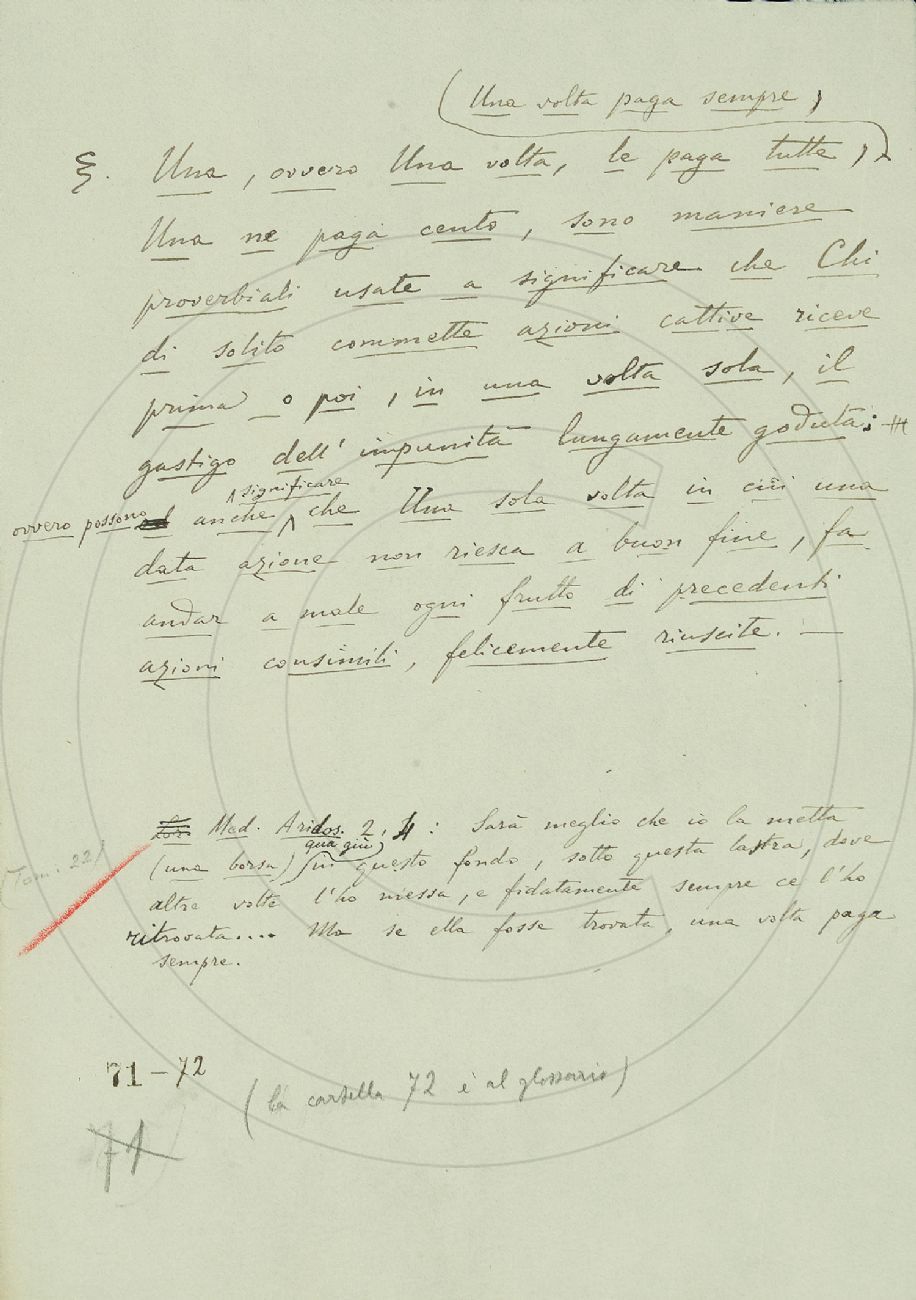 (Una volta paga sempre,
§. Una, ovvero Una volta, le paga tutte,)
Una ne paga cento, sono maniere
proverbiali usate a significare che Chi
di solito commette azioni cattive riceve
prima o poi, in una volta sola, il
gastigo dell' impunità lungamente goduta;
significare
ovvero possono anche che Una sola volta in cui una
data azione non riesca a buon fine, fa
andar a male ogni frutto di precedenti
azioni consimili, felicemente riuscite. —
Med. Aridos. 2, 4: Sarà meglio che io la metta
qua giù
(una borsa) in questo fondo, sotto questa lastra, dove
altre volte l'ho messa, e fidatamente sempre ce l'ho
ritrovata.... Ma se ella fosse trovata, una volta paga
sempre.
(Tom. 22)
71-72
(la cartella 72 è al glossario)
71